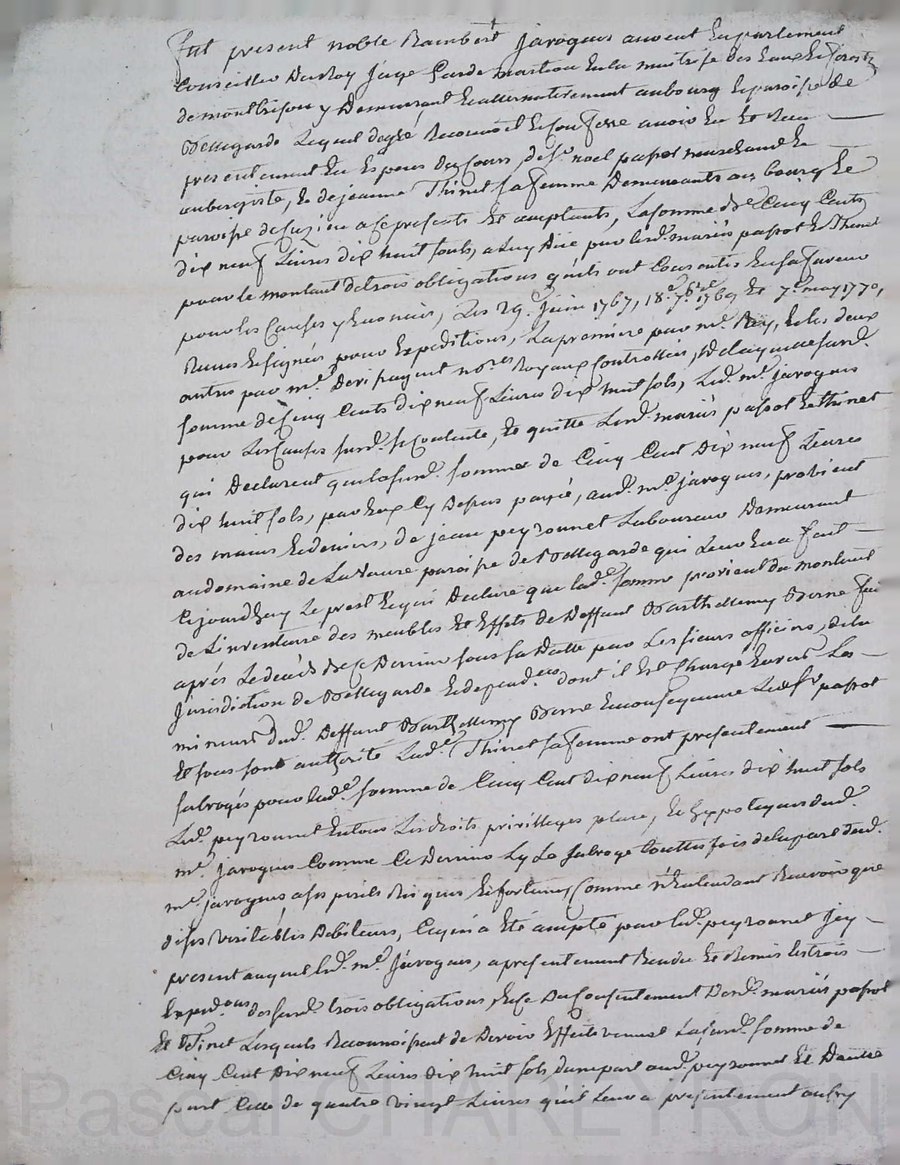 Fut present noble Rambert Javogues avocat en parlement
Conseiller du Roy juge Garde marteau en la maitrise des Eaux et forests
de montbrison y Demeurant et alternativement au bourg et paroisse de
Bellegarde Lequel de gré Reconnoit et confesse avoir Eu et Receu
presentement En Especes du Cours, de Sr. noel passot marchand et
aubergiste, et de jeanne Thinet sa femme Demeurants au bourg et
paroisse de Cuzieu a ce presents et acceptants, La somme de Cinq Cents
dix neuf Livres dix huit sols, a Luy due par lesd. mariés passot et Thinet
pour le montant de trois obligations qu'ils ont Consenties En sa faveur
pour les Causes y Enoncées, Les 29e. juin 1767, 18e. 7bre 1769 et 7e. may 1770,
Reçues et signées pour Expeditions, La premiere par me. Rey, et les deux
autres par me. nores Royaux Controllées, de laquelle susd.
somme de Cinq Cents dix neuf Livres dix huit sols, Led. me. javogues
pour Les Causes susd. se contente, et quitte Lesd. mariés passot et thinet
qui Declarent que la susd. somme de Cinq Cent Dix neuf Livres
dix huit sols, par Eux Cy Depuis payée, aud. me. javogues, provient
des mains et deniers, de jean peyronnet Laboureur Demeurant
au domaine de paroisse de Bellegarde qui Leur En a fait
Cejourdhuy Le prest Lequel Declare que lad. somme provient du montant
de L'inventaire des meubles et Effets de Deffunt Barthellemy Berne fait
après Le decès de ce Dernier sous sa Datte par Les sieurs officiers, de la
jurisdiction de Bellegarde et dependces dont il Est Chargé Envers Les
mineurs dud. Deffunt Barthellemy Berne En consequence Led. Sr passot
et sous son authorité Lad. Thinet sa femme ont presentement
subrogés pour lad. somme de Cinq Cent dix neuf Livres dix huit sols
Led. peyronnet En tous Les droits privilleges place, et hyppoteques dud.
me. javogues Comme Ce Dernier Ly Le subroge touttes fois de la part dud.
me. javogues a ses perils Risques et fortunes Comme n'Entendant Recevoir que
de ses veritables Debiteurs, Ce qui a Eté accepté par led. peyronnet Icy
present auquel led. me. Javogues, a presentement Rendu et Remis les trois
Expedons des susd. trois obligations, et ce Du Consentement Desd. mariés passot
et Tinet Lesquels Reconnoissant de Devoir Effectivement La susd. somme de
Cinq Cent Dix neuf Livres dix huit sols, d'une part aud. peyronnet et Dautre
part Celle de quatre vingt Livres qu'il Leur a presentement
Pascal CHAREYRON